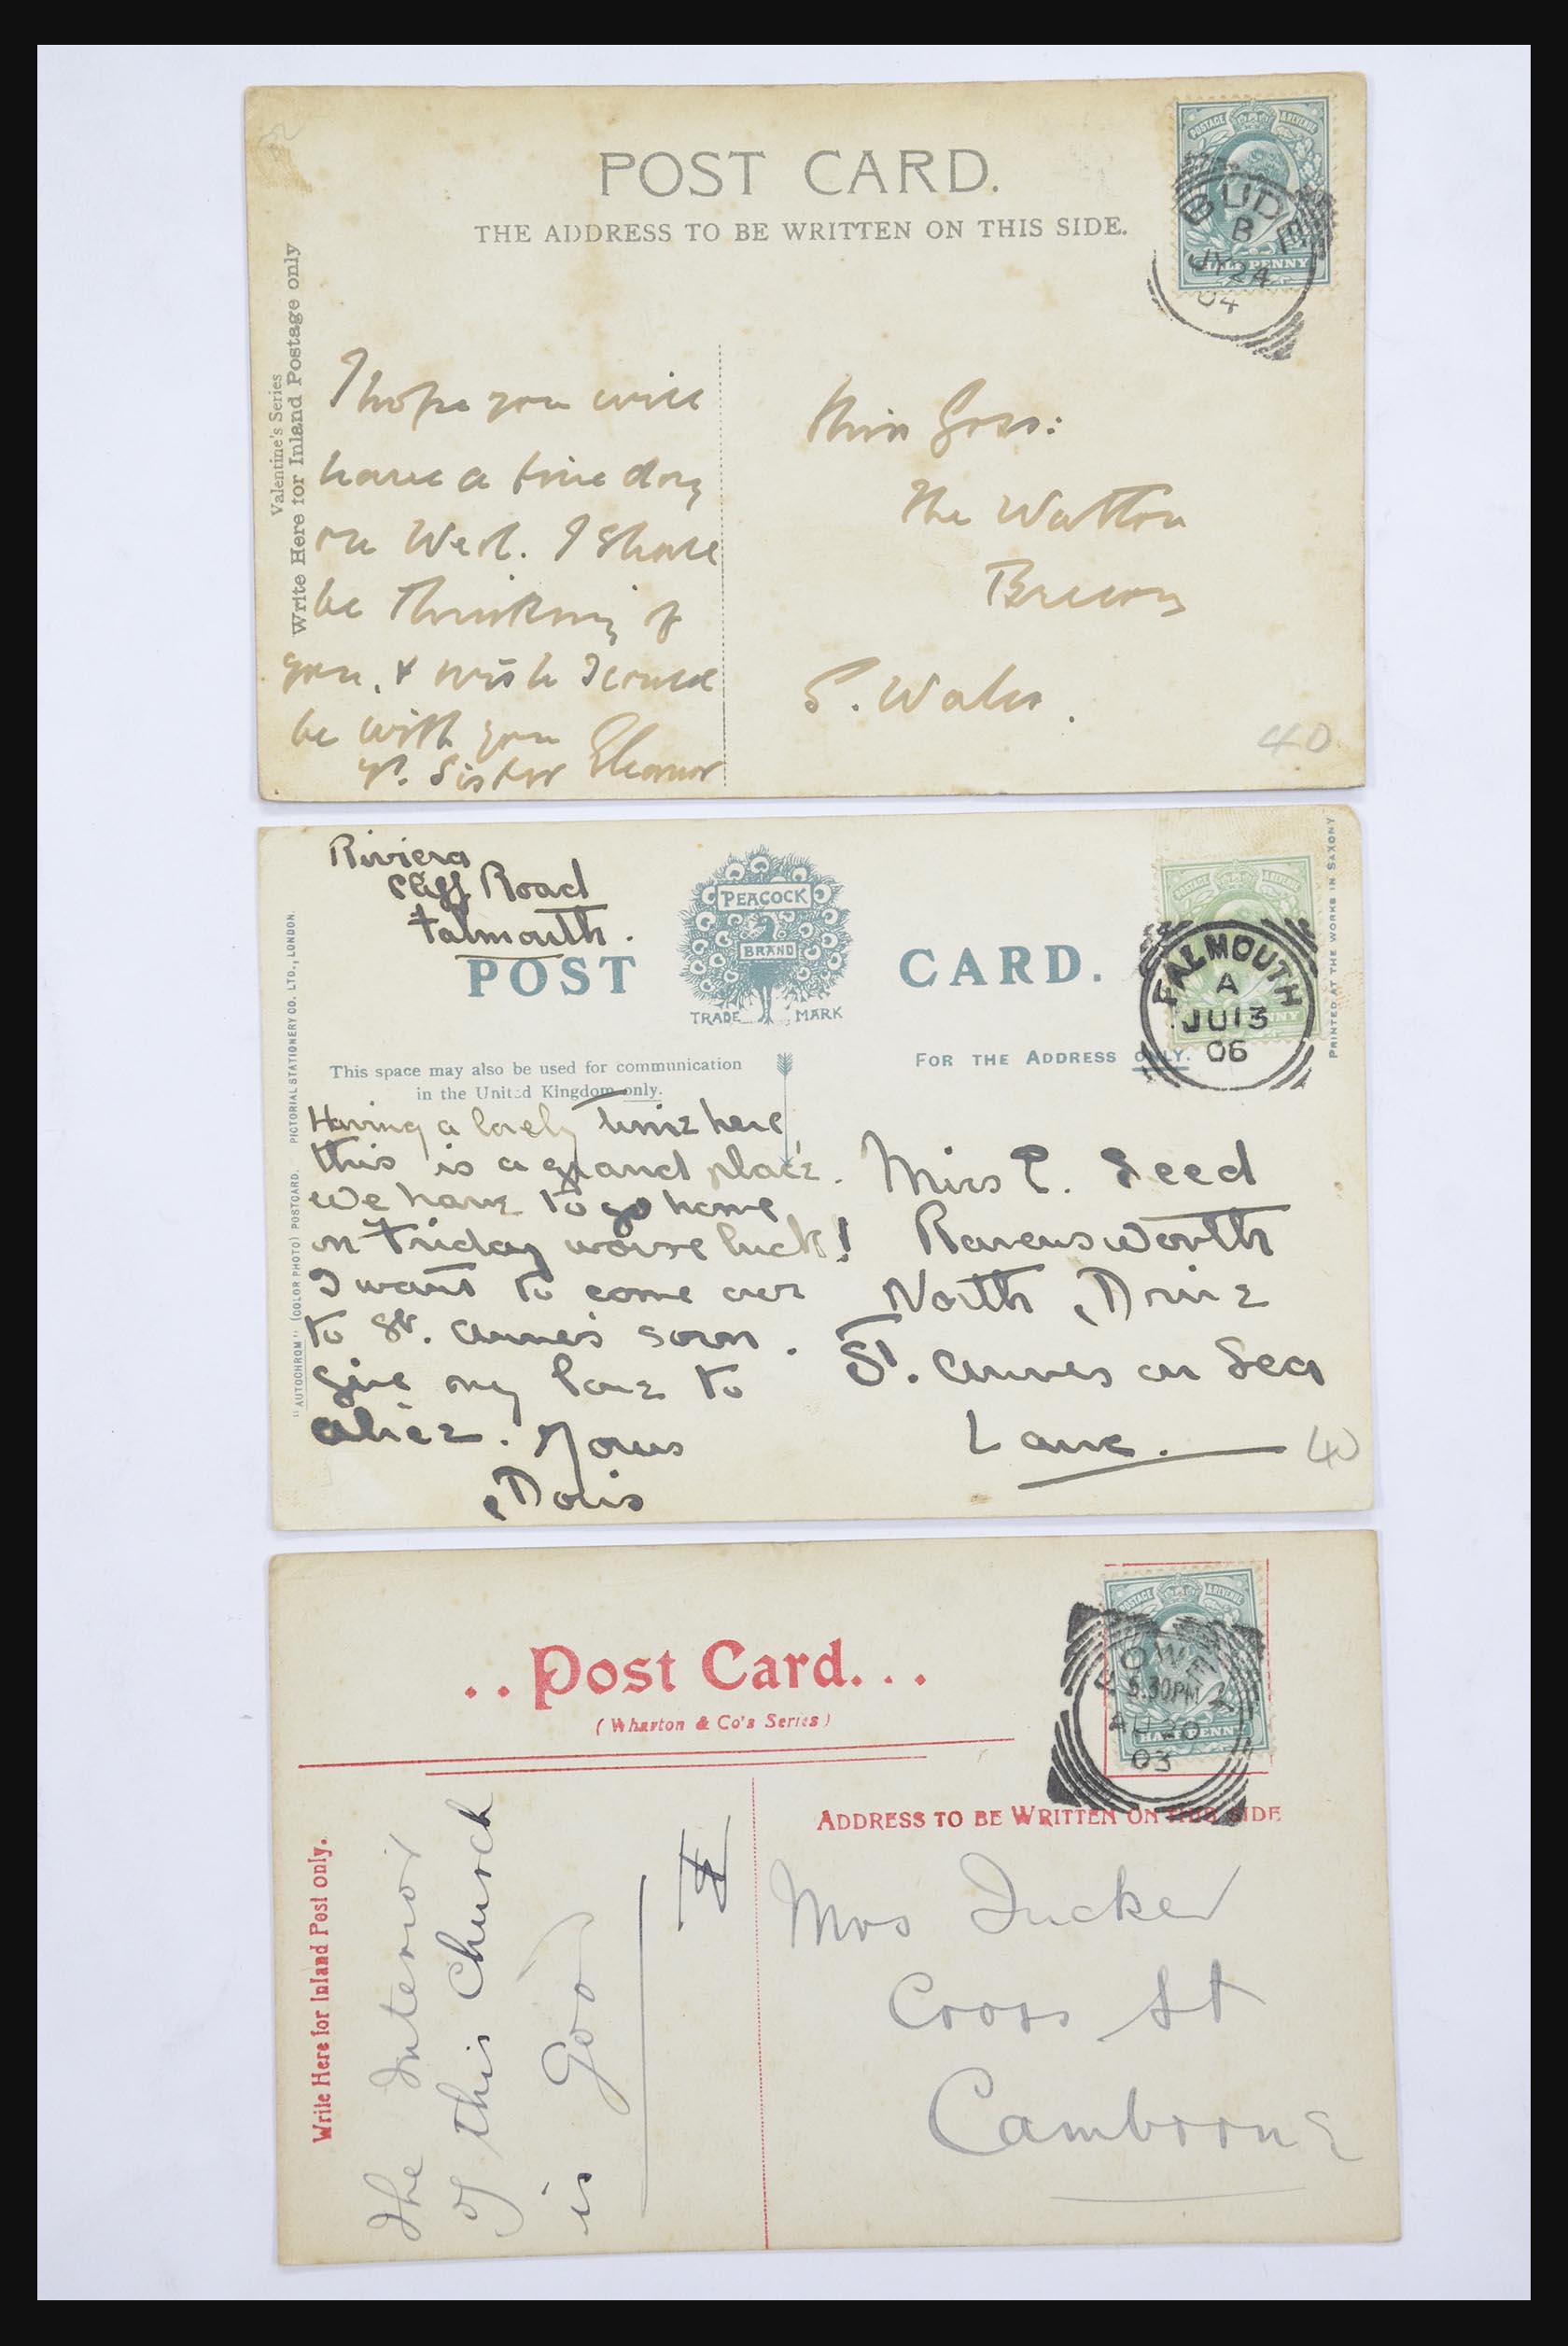 POST CARD.
THE ADDRESS TO BE WRITTEN ON THIS SIDE.
Valentine's Series
Write Here for Inland Postage only
BUDE
B
JY 24
04
POSTAGE REVENUE
HALF PENNY
I hope you will
have a fine day
on Wed. I shall
be thinking of
you, & wish I could
be with you
yr. Sister Eleanor
Miss
The Watton
Brecon
S. Wales.
40
Riviera
Cliff Road
Falmouth.
POST CARD.
PEACOCK
BRAND
TRADE MARK
"AUTOCHROM" (COLOR PHOTO) POSTCARD. PICTORIAL STATIONERY CO. LTD., LONDON.
PRINTED AT THE WORKS IN SAXONY
This space may also be used for communication
in the United Kingdom only.
FOR THE ADDRESS ONLY.
POSTAGE REVENUE
FALMOUTH
A
JU 13
06
Having a lovely time here,
this is a grand place.
We have to go home
on Friday worse luck!
I want to come over
to St. Anne's soon.
give my love to
Alice. Yours
Doris
Miss E. Seed
Ravensworth
North Drive
St. Annes on Sea
Lanc.
40
..Post Card...
(Wharton & Co's Series)
POSTAGE REVENUE
HALF PENNY
FOWEY
5.30PM
AU 20
03
ADDRESS TO BE WRITTEN ON THIS SIDE
Write Here for Inland Post only.
The Interior
of this Church
is Good
Mrs Tucker
Cross St
Camborne